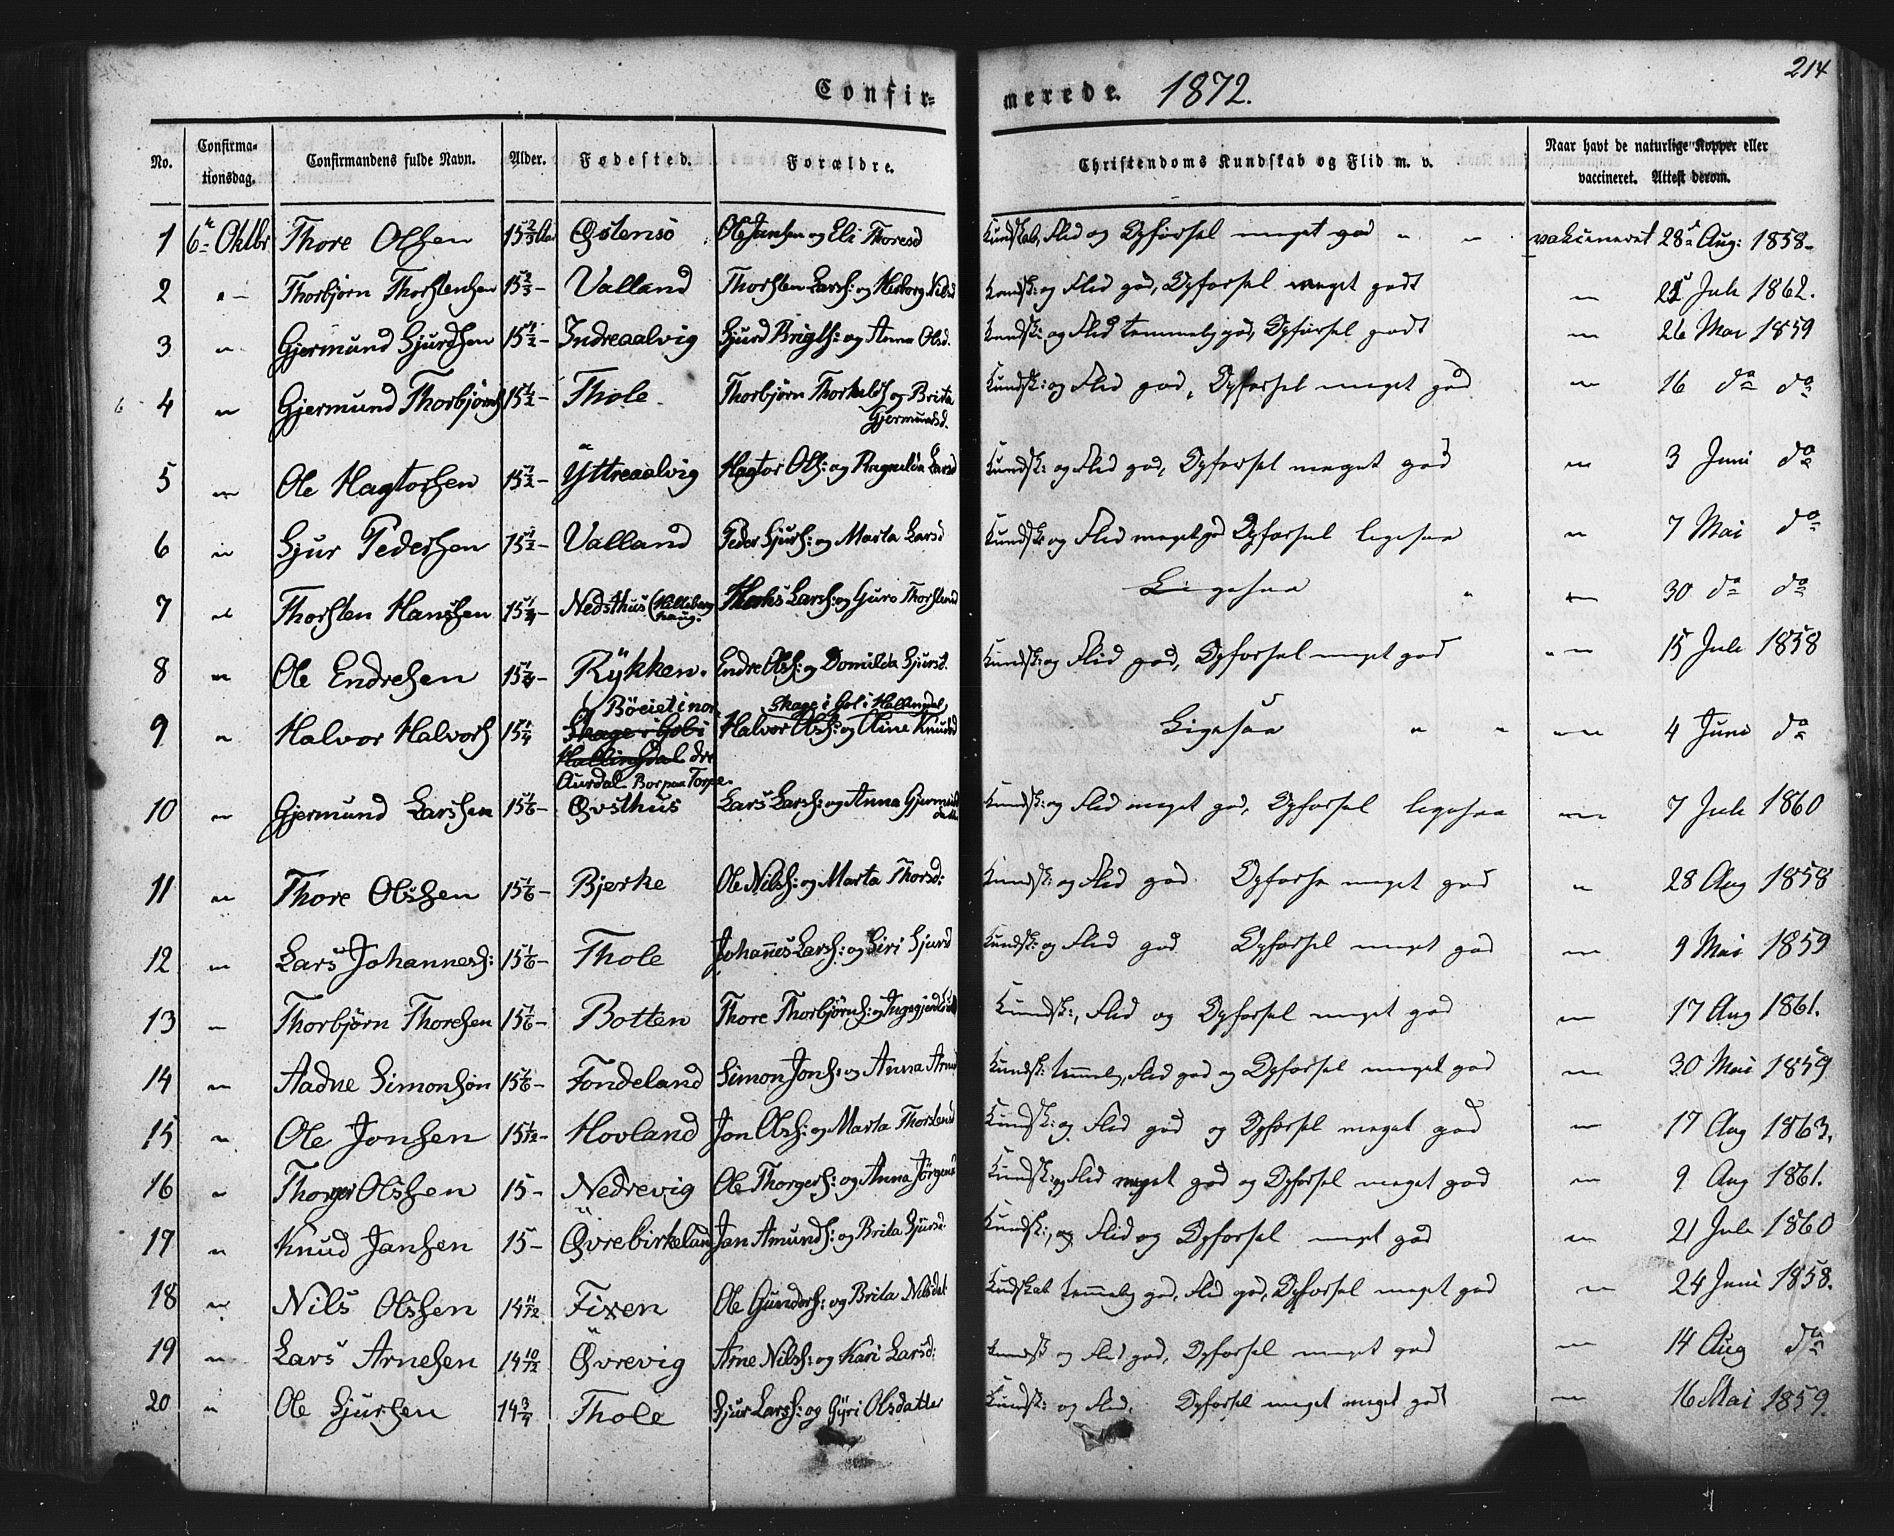 214
Confir- merede. 1872.
No. Confirma-tionsdag. Confirmandens fulde Navn. Alder. Fødested. Forældre. Christendoms Kundskab og Flid m. v. Naar havt de naturlige Kopper eller vaccineret. Attest derom.
1 6te Oktbr Thore Olsen 15 2/3 Aar Østensö Ole Jansen og Eli Thoresd Kundskab, Flid og Opförsel meget god " " vakcineret 28de Aug: 1858-
2 " Thorbjörn Thorstensen 15 2/3 - Valland Thorsten Larss: og Herborg Nilsd Kundsk: og Flid god, Opförsel meget godt " Juli 1862.
3 " Gjermund Sjurdsen 15 1/2 - Indreaalvig Sjurd Brigts: og Anna Olsd. Kundsk: og Flid temmelig god, Opförsel godt " 26 Mai 1859
4 " Gjermund Thorbjörns 15 1/2 - Thole Thorbjörn Thorkilds og Brita Kundsk: og Flid god, Opförsel meget god " 16 do do
Gjermundsd.
5 " Ole Hagtorsen 15 1/2 - Yttreaalvig Hagtor Ols: og Ragnilda Larsd Kundsk: og Flid god, Opförsel meget god " 3 Juni do
6 " Sjur Pedersen 15 1/2 - Valland Peder Sjurs: og Marta Larsd Kundsk og Flid meget god Opförsel ligesaa " 7 Mai do
7 " Thorsten Hansen 15 1/4 - Nedsthus (Hilleberg Hans Larss: og Guro Thorstensd Ligesaa " " 30 do do
haug.
8 " Ole Endresen 15 1/4 - Rykken. Endre Ols: og Domilda Sjursd. Kundsk: og Flid god, Opförsel meget god " " 15 Juli 1858
Böeietinor Skage i Gol i Hallingdal,
9 " Halvor Halvors 15 1/4 Skage i Gol i Halvor Ols: og Oline Knudsd Ligesaa " " " 4 Juni do
Hallingdal dre
Aurdal Bor paa Torpe.
10 " Gjermund Larssen 15 1/6 - Øvsthus Lars Larss: og Anna Gjermunds Kundsk: og Flid meget god, Opförsel ligesaa " 7 Juli 1860
datter
11 " Thore Olssen 15 1/6 - Bjerke Ole Nils: og Marta Thorsd: Kundsk: og Flid god Opförse meget god " 28 Aug 1858
12 " Lars Johanness: 15 1/6 - Thole Johannes Larss: og Siri Sjursd Kundsk: og Flid god Opförsel meget god " 9 Mai 1859
13 " Thorbjörn Thoresen 15 1/6 - Botten Thore Thorbjörns: og Kundsk:, Flid og Opförsel meget god " 17 Aug 1861.
14 " Aadne Simonsön 15 1/6 - Tondeland Simon Jons: og Anna Arnesd Kundsk: temmelig, Flid god og Opförsel meget god " 30 Mai 1859
15 " Ole Jonsen 15 1/12 - Hovland Jon Ols: og Marta Thorstensd Kundsk: og Flid god og Opförsel meget god " 17 Aug 1863.
16 " Thorger Olssen 15 - Nedrevig Ole Thorgers: og Anna Jörgensd Kundsk: og Flid meget god og Opförsel meget god " 9 Aug 1861.
17 " Knud Jansen 15 - Øvrebirkeland Jan Amunds: og Brita Sjursd: Kundsk:, og Flid og Opförsel meget god " 21 Juli 1860
18 " Nils Olssen 14 11/12 Fixen Ole Gunders: og Brita Nilsdat Kundskab temmelig god, Flid god, Opförsel meget god " 24 Juni 1858.
19 " Lars Arnesen 14 10/12 Øvrevig Arne Nils: og Kari Larsd: Kundsk og Flid god, Opförsel meget god " 14 Aug do
20 " Ole Sjursen 14 3/4 Thole Sjur Larss: og Gyri Olsdatter Kundsk: og Flid, Opförsel meget meget godt " 16 Mai 1859.